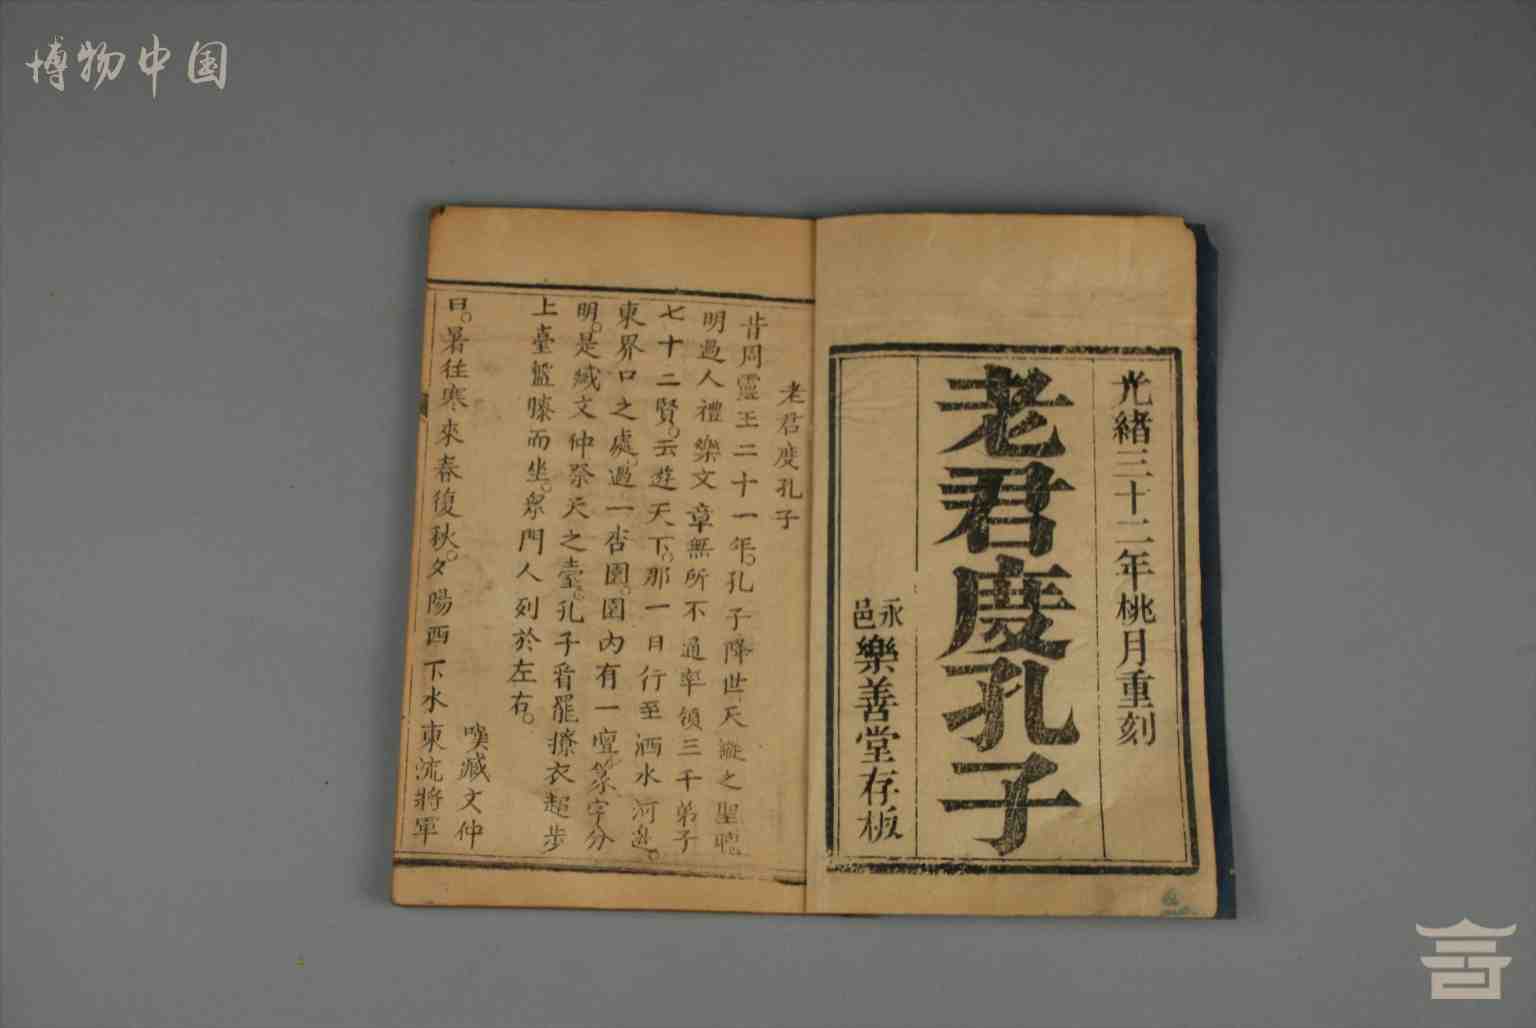 博物中国
光緒三十二年桃月重刻
老君度孔子
永邑樂善堂存板
老君度孔子
昔周靈王二十一年。孔子降世天縱之聖聰
明過人禮樂文章無所不通率領三千弟子
七十二賢。云遊天下。那一日行至洒水河邊。
東界口之處。過一杏園。園內有一壇篆字分
明。是臧文仲祭天之臺。孔子看罷撩衣起步
上臺盤膝而坐。眾門人列於左右。
嘆臧文仲
曰。暑往寒來春復秋。夕陽西下水東流將軍